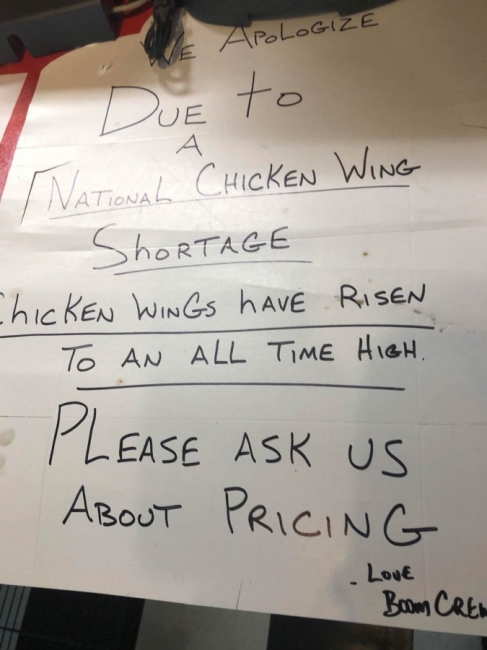 We Apologize
Due to
A
National Chicken Wing
Shortage
Chicken Wings have Risen
To an all Time High.
Please ask us
About Pricing
- Love
Boom Crew